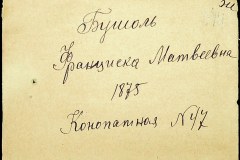 Бушоль
Франциска Матвеевна
1875
Конопатная №47